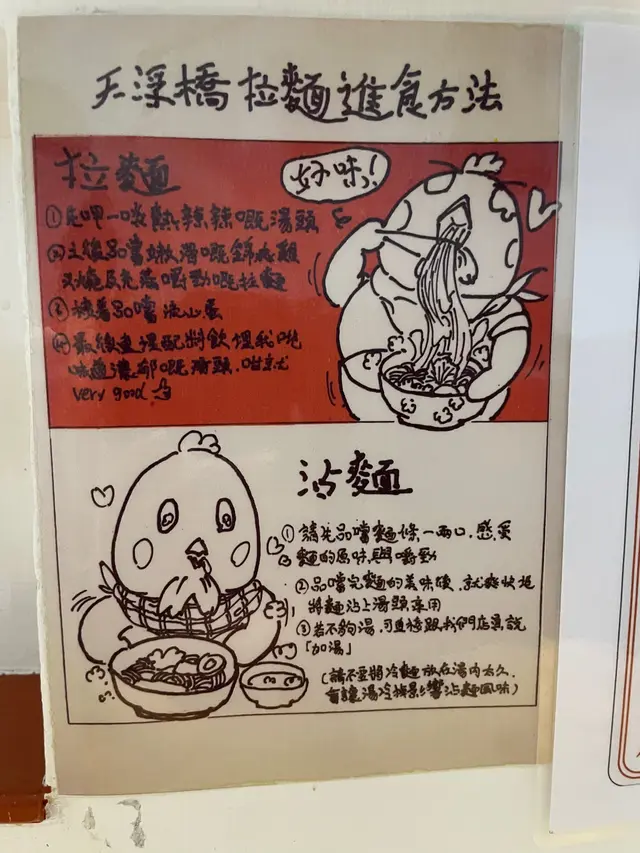 天深橋拉麵進食方法
拉麵
好味!
①先呷一啖熱辣辣嘅湯頭
②之後品嚐嫩滑嘅錦爽雞
叉燒及充滿嚼勁嘅拉麵
③接着品嚐流心蛋
④最後直接配料飲埋我哋
味道濃郁嘅湯頭.咁就
very good
沾麵
①請先品嚐麵條一兩口.感受
麵的原味與嚼勁
②品嚐完麵的美味後,就爽快地
將麵沾上湯頭享用
③若不夠湯,可直接跟我們店員說
「加湯」
(請不要將冷麵放在湯內太久.
會讓湯冷掉影響沾麵風味)